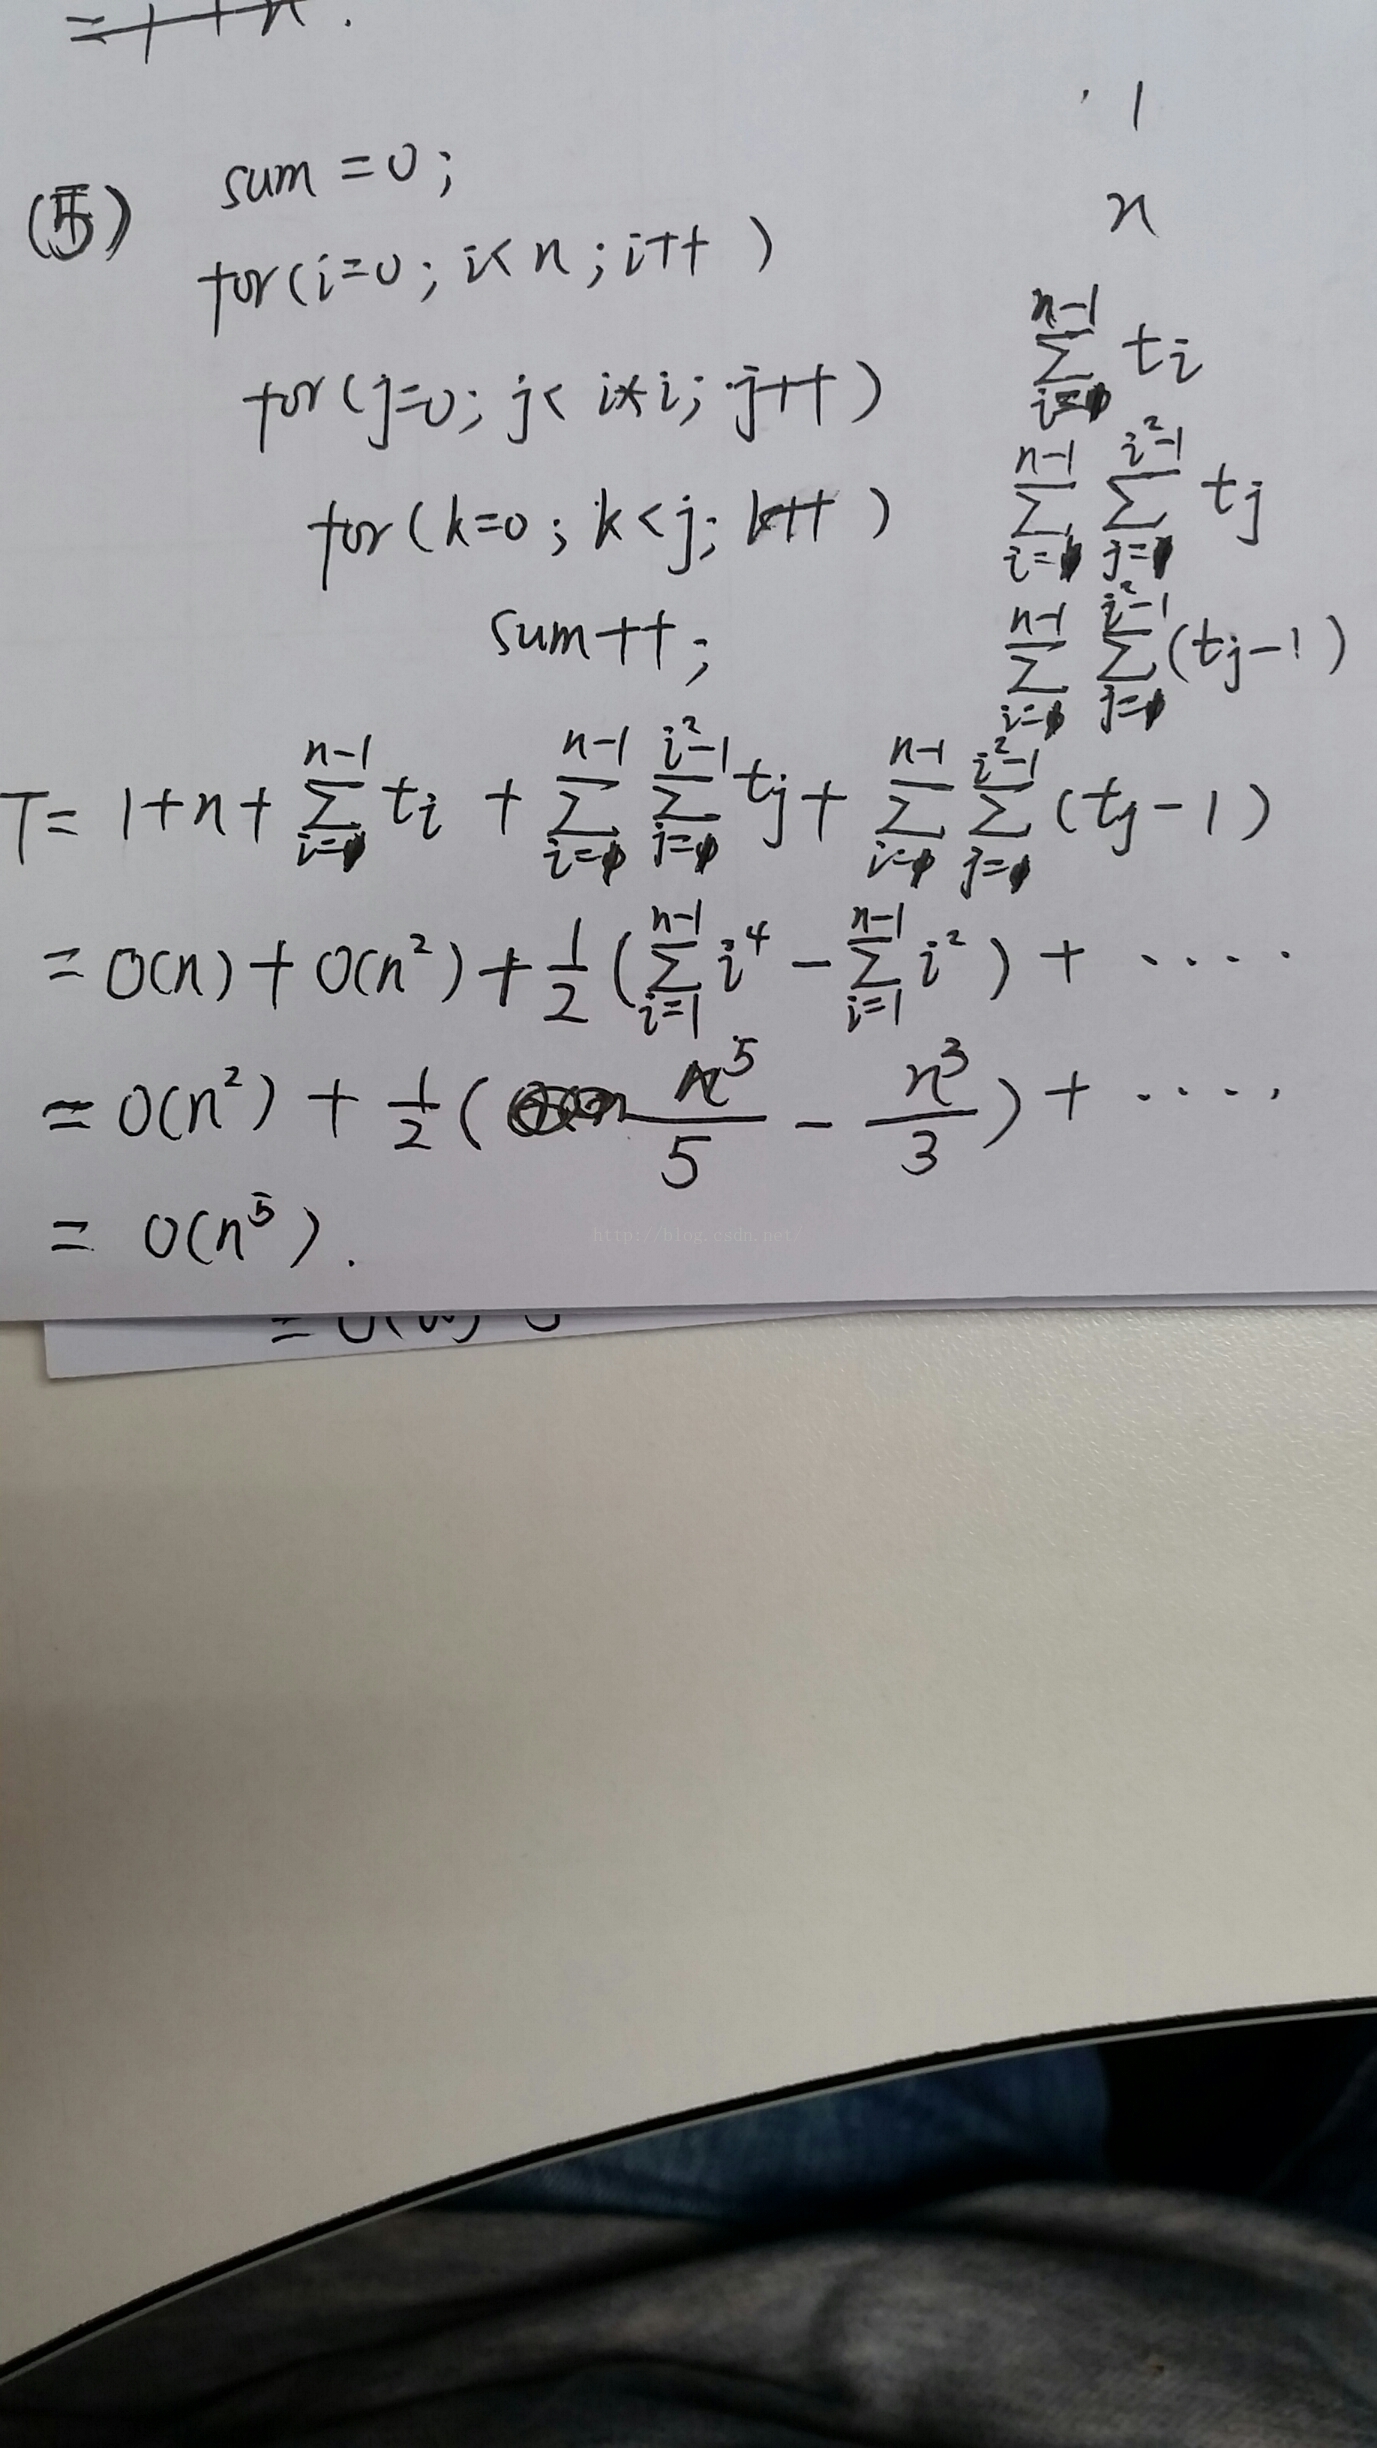 = 1 + n .
(5) sum = 0 ; 1
for ( i = 0 ; i < n ; i++ ) n
for ( j = 0 ; j < i * i ; j++ ) ∑_{i=0}^{n-1} t_i
for ( k = 0 ; k < j ; k++ ) ∑_{i=0}^{n-1} ∑_{j=0}^{i²-1} t_j
sum++ ; ∑_{i=0}^{n-1} ∑_{j=0}^{i²-1} (t_j - 1)
T = 1 + n + ∑_{i=0}^{n-1} t_i + ∑_{i=0}^{n-1} ∑_{j=0}^{i²-1} t_j + ∑_{i=0}^{n-1} ∑_{j=0}^{i²-1} (t_j - 1)
= O(n) + O(n²) + 1/2 ( ∑_{i=1}^{n-1} i⁴ - ∑_{i=1}^{n-1} i² ) + ....
= O(n²) + 1/2 ( n⁵/5 - n³/3 ) + ....
= O(n⁵) .
http://blog.csdn.net/